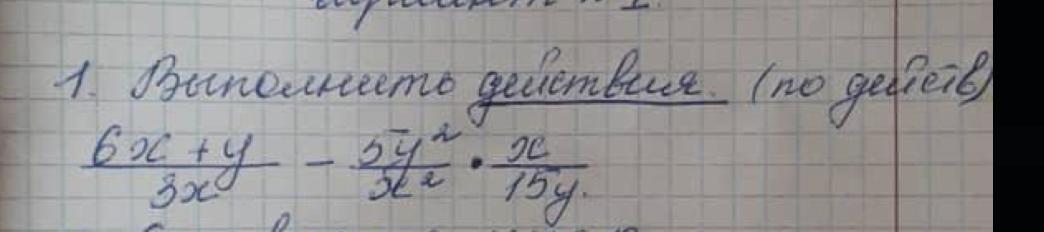 1. Выполнить действия. (по действ)
(6x + y)/(3x) - (5y²)/(x²) · x/(15y).